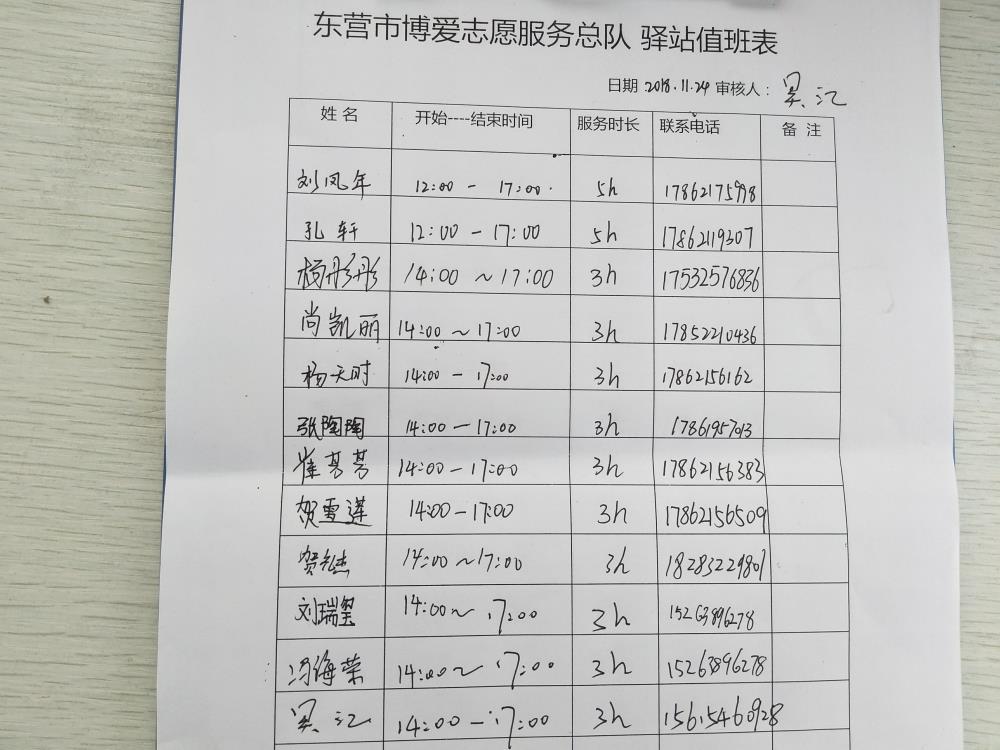 东营市博爱志愿服务总队 驿站值班表
日期 2018.11.24 审核人: 吴江
姓名 开始----结束时间 服务时长 联系电话 备注
刘凤年 12:00 - 17:00 5h 17862175998
孔轩 12:00 - 17:00 5h 17862119307
杨彤彤 14:00 ~ 17:00 3h 17532576836
尚凯丽 14:00 ~ 17:00 3h 17852210436
杨天时 14:00 - 17:00 3h 17862156162
张陶陶 14:00 - 17:00 3h 17861957013
崔芳芳 14:00 - 17:00 3h 17862156383
贺雪莲 14:00 - 17:00 3h 17862156509
贺 14:00 ~ 17:00 3h 18283229807
刘瑞玺 14:00 ~ 17:00 3h 15263896278
冯海荣 14:00 ~ 17:00 3h 15263896278
吴江 14:00 - 17:00 3h 15615460928